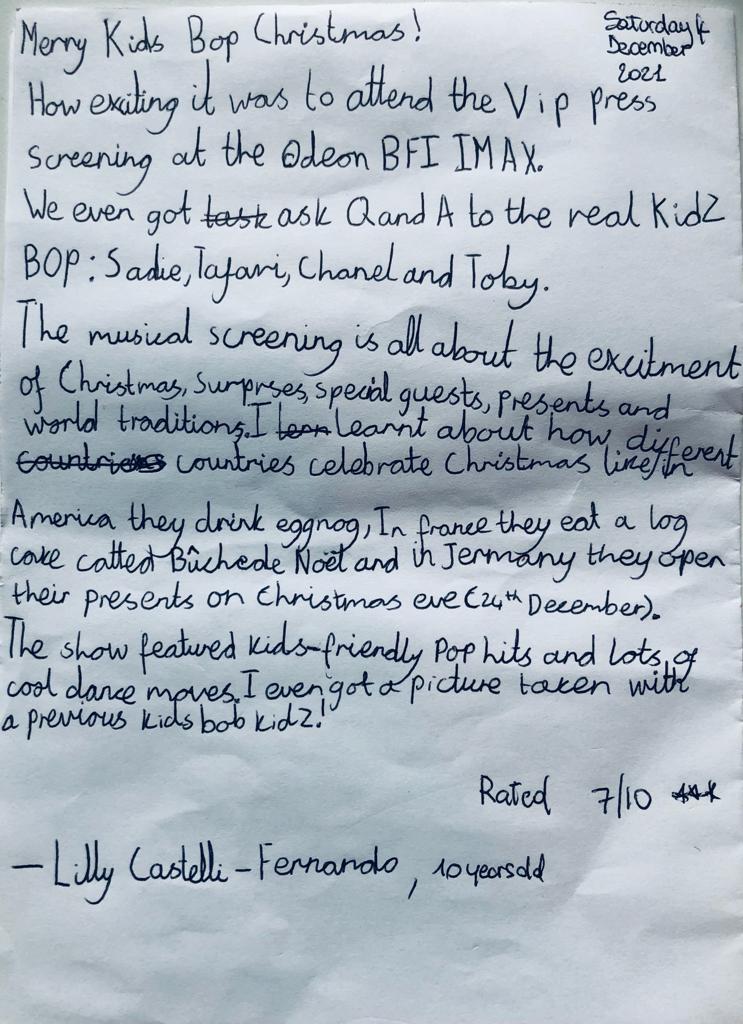 Merry Kids Bop Christmas!
Saturday 4
December
2021
How exciting it was to attend the Vip press
screening at the Odeon BFI IMAX.
We even got task ask Q and A to the real KidZ
BOP: Sadie, Tafari, Chanel and Toby.
The musical screening is all about the excitment
of Christmas, Surprses, special guests, presents and
world traditions. I lern learnt about how different
countries countries celebrate Christmas like in
America they drink eggnog, In france they eat a log
cake called Bûche de Noël and in Jermany they open
their presents on Christmas eve (24th December).
The show featured kids-friendly Pop hits and lots of
cool dance moves. I even got a picture taken with
a previous kids bob kidZ!
Rated 7/10 ***
— Lilly Castelli - Fernando, 10 years old